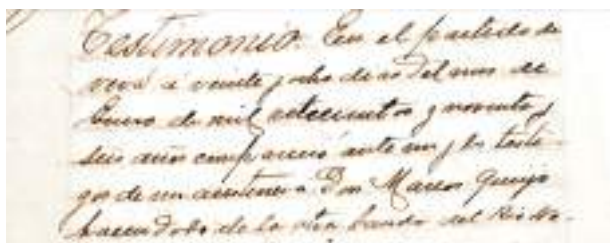 Testimonio. En el partido de
a veinte y ocho dias del mes de
Enero de mil setecientos y noventa y
seis años comparecio ante mi y los testi
gos de mi asistencia Don Marcos
hacendado de la otra banda del Rio